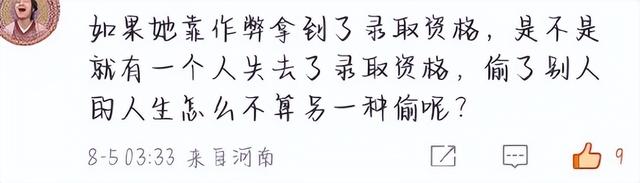 如果她靠作弊拿到了录取资格，是不是
就有一个人失去了录取资格，偷了别人
的人生怎么不算另一种偷呢？
8-5 03:33 来自河南
9